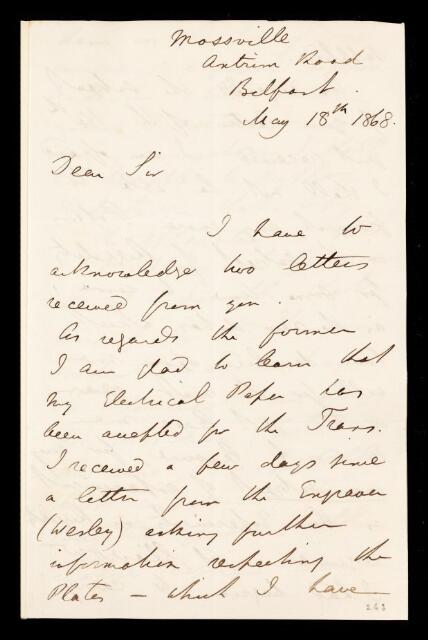 Mossville
Antrim Road
Belfast.
May 18th 1868.
Dear Sir
I have to
acknowledge two letters
received from you.
As regards the former
I am glad to learn that
my Electrical Paper has
been accepted for the Trans.
I received a few days since
a letter from the Engraver
(Wesley) asking further
information respecting the
Plates – which I have
263